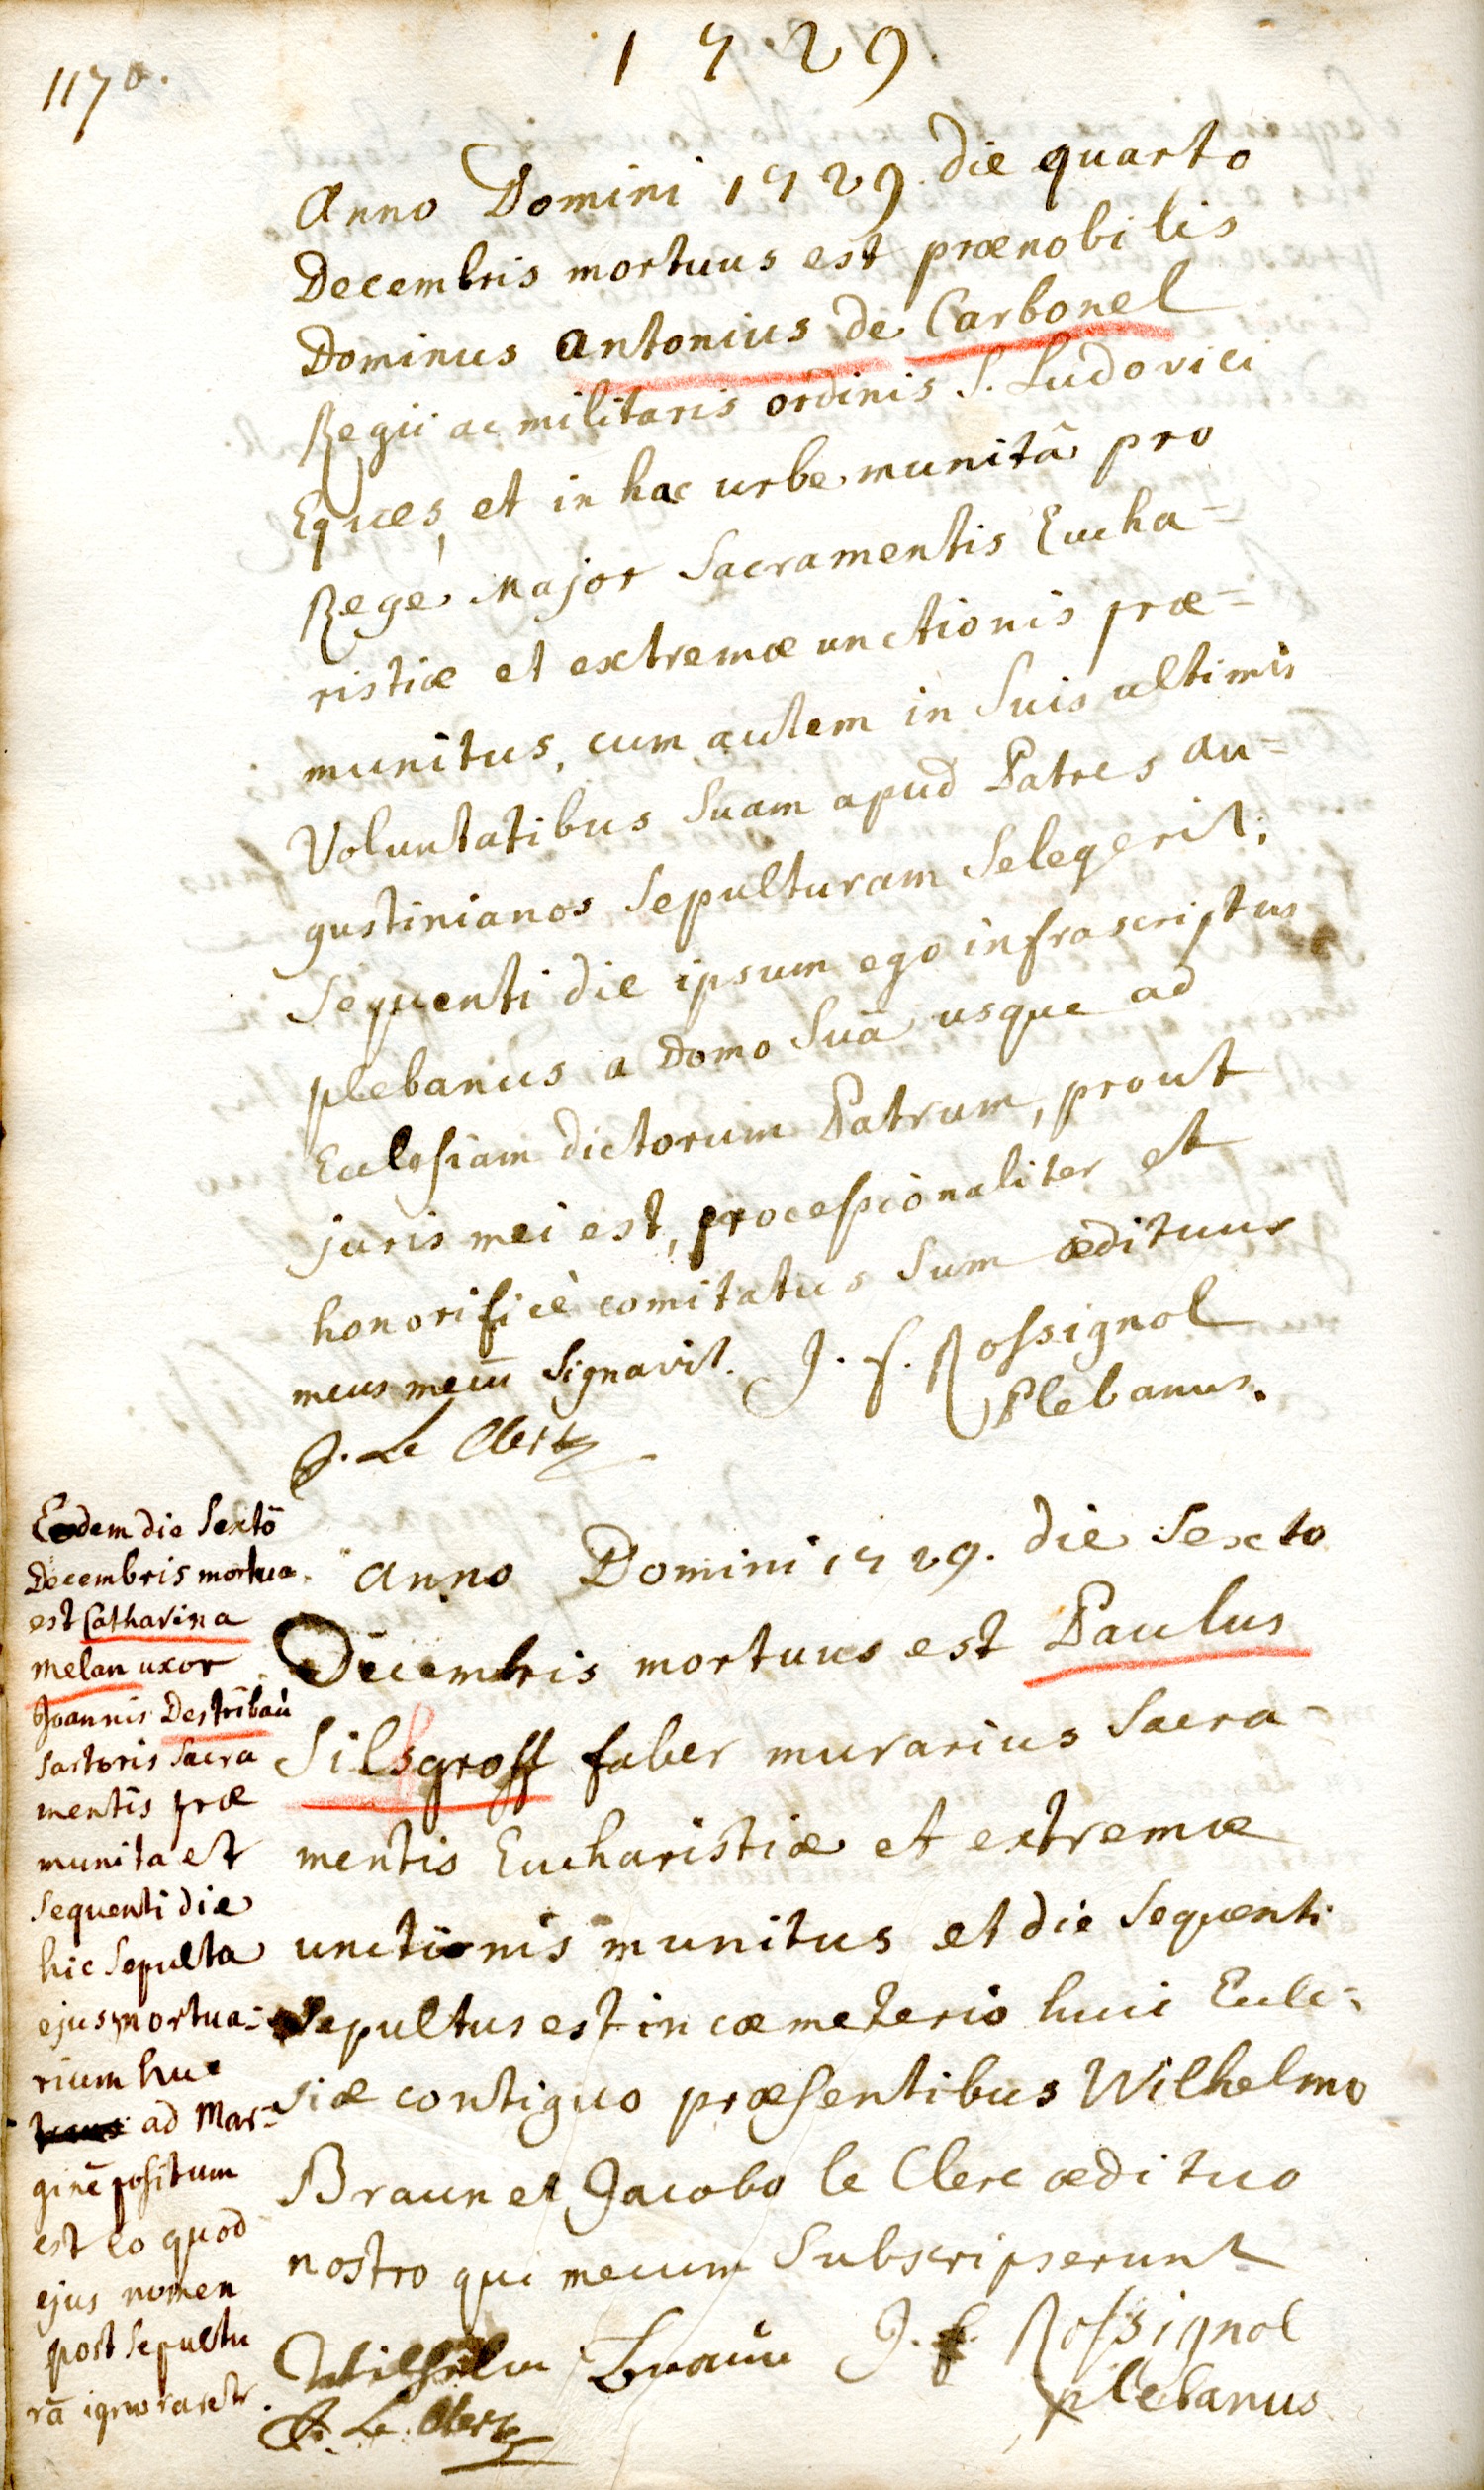 1729.
1170.
Anno Domini 1729. die quarto
Decembris mortuus est prænobilis
Dominus Antonius de Carbonel
Regii ac militaris ordinis S. Ludovici
Eques, et in hac urbe munitâ pro
Rege Major Sacramentis Eucha=
ristiæ et extremæ unctionis præ=
munitus, cum autem in Suis ultimis
Voluntatibus Suam apud Patres Au=
gustinianos Sepulturam Selegerit;
Sequenti die ipsum ego infrascriptus
plebanus a Domo Suâ usque ad
Ecclesiam dictorum Patrum, prout
juris mei est, processionaliter et
honorificè comitatus Sum ædituus
meus mecū Signavit. J. f. Rossignol
Plebanus.
J. Le Clerc
Anno Domini 1729. die Sexto
Decembris mortuus est Paulus
Silsgroff faber murarius Sacra=
mentis Eucharistiæ et extremæ
unctionis munitus et die Sequenti
Sepultus est in cæmeterio huic Eccle=
siæ contiguo præsentibus Wilhelmo
Braun et Jacobo le Clerc ædituo
nostro qui mecum Subscripserunt
Wilhelm Braun J. f. Rossignol
plebanus
J. Le Clerc
Eodem die Sextô
Decembris mortua
est Catharina
Melan uxor
Joannis Destribau
Sartoris Sacra
mentis præ
munita et
Sequenti die
hic Sepulta
ejus mortua=
rium huc
ad Mar=
ginē positum
est eo quod
ejus nomen
post Sepultu
rā ignoraretr.